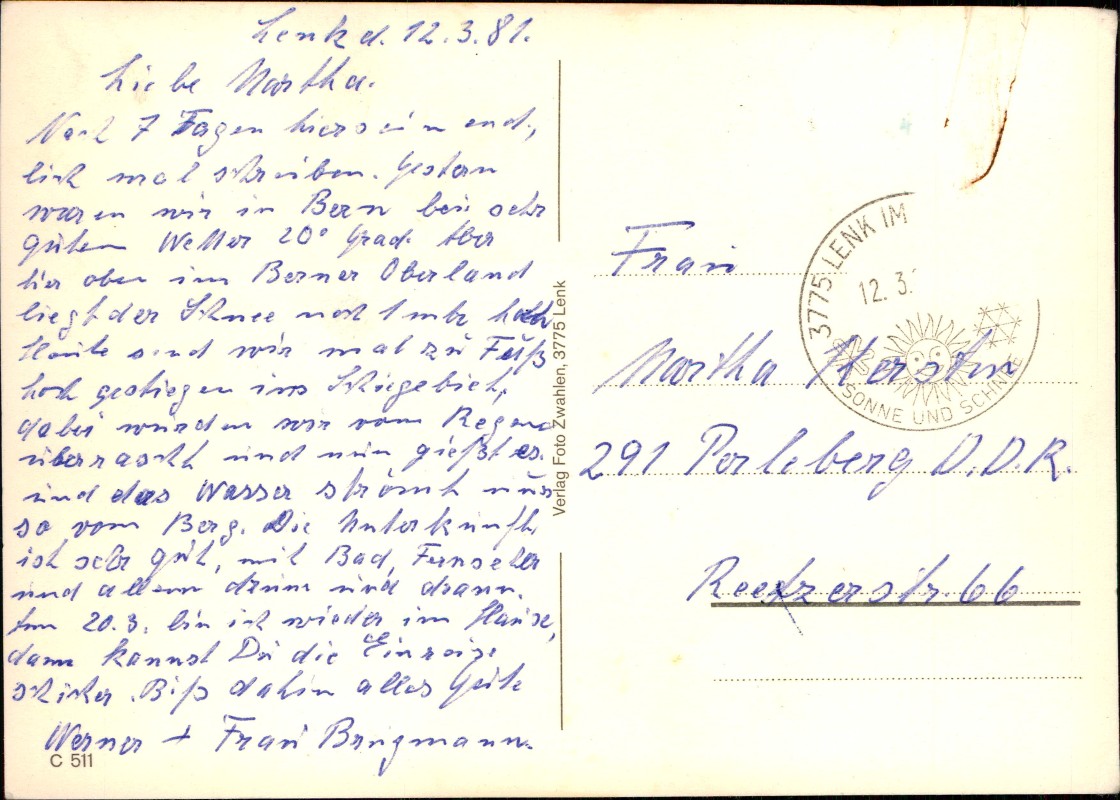 Lenk d. 12.3.81.
Liebe Martha.
Nach 7 Tagen hiersein end,
lich mal schreiben. Gestern
waren wir in Bern bei sehr
gutem Wetter 20° Grad. Aber
hier oben im Berner Oberland
liegt der Schnee noch 1 mtr hoch
Heute sind wir mal zu Fuß
hoch gestiegen ins Skigebiet,
dabei wurden wir vom Regen
überrascht und nun gießt es.
und das Wasser strömt nur
so vom Berg. Die Unterkunft
ist sehr gut, mit Bad, Fernseher
und allem drum und drann.
Am 20.3. bin ich wieder im Hause,
dann kannst Du die Einreise
schicken. Biß dahin alles Gute
Werner + Frau Brügmann.
C 511
Verlag Foto Zwahlen, 3775 Lenk
3775 LENK IM
12.3.
SONNE UND SCHNEE
Frau
Martha
291 Perleberg D.D.R.
Reetzerstr. 66